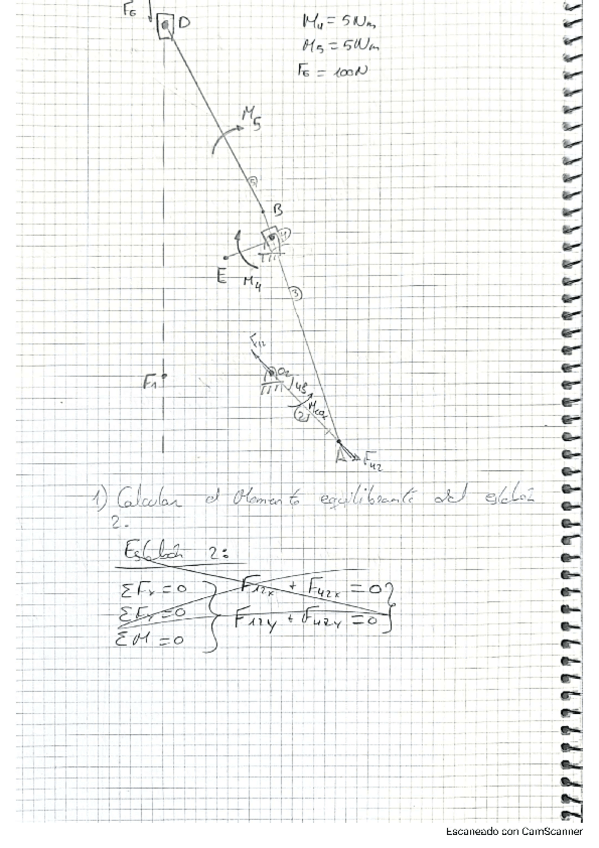 F6
D
M4 = 5Nm
M5 = 5Nm
F6 = 100N
M5
5
B
4
E
M4
3
F1
F12
O2
45
M
2
A
F42
1) Calcular el Momento equilibrante del eslabón
2.
Eslabón 2:
ΣFx = 0
F12x + F42x = 0
ΣFy = 0
F12y + F42y = 0
ΣM = 0
Escaneado con CamScanner